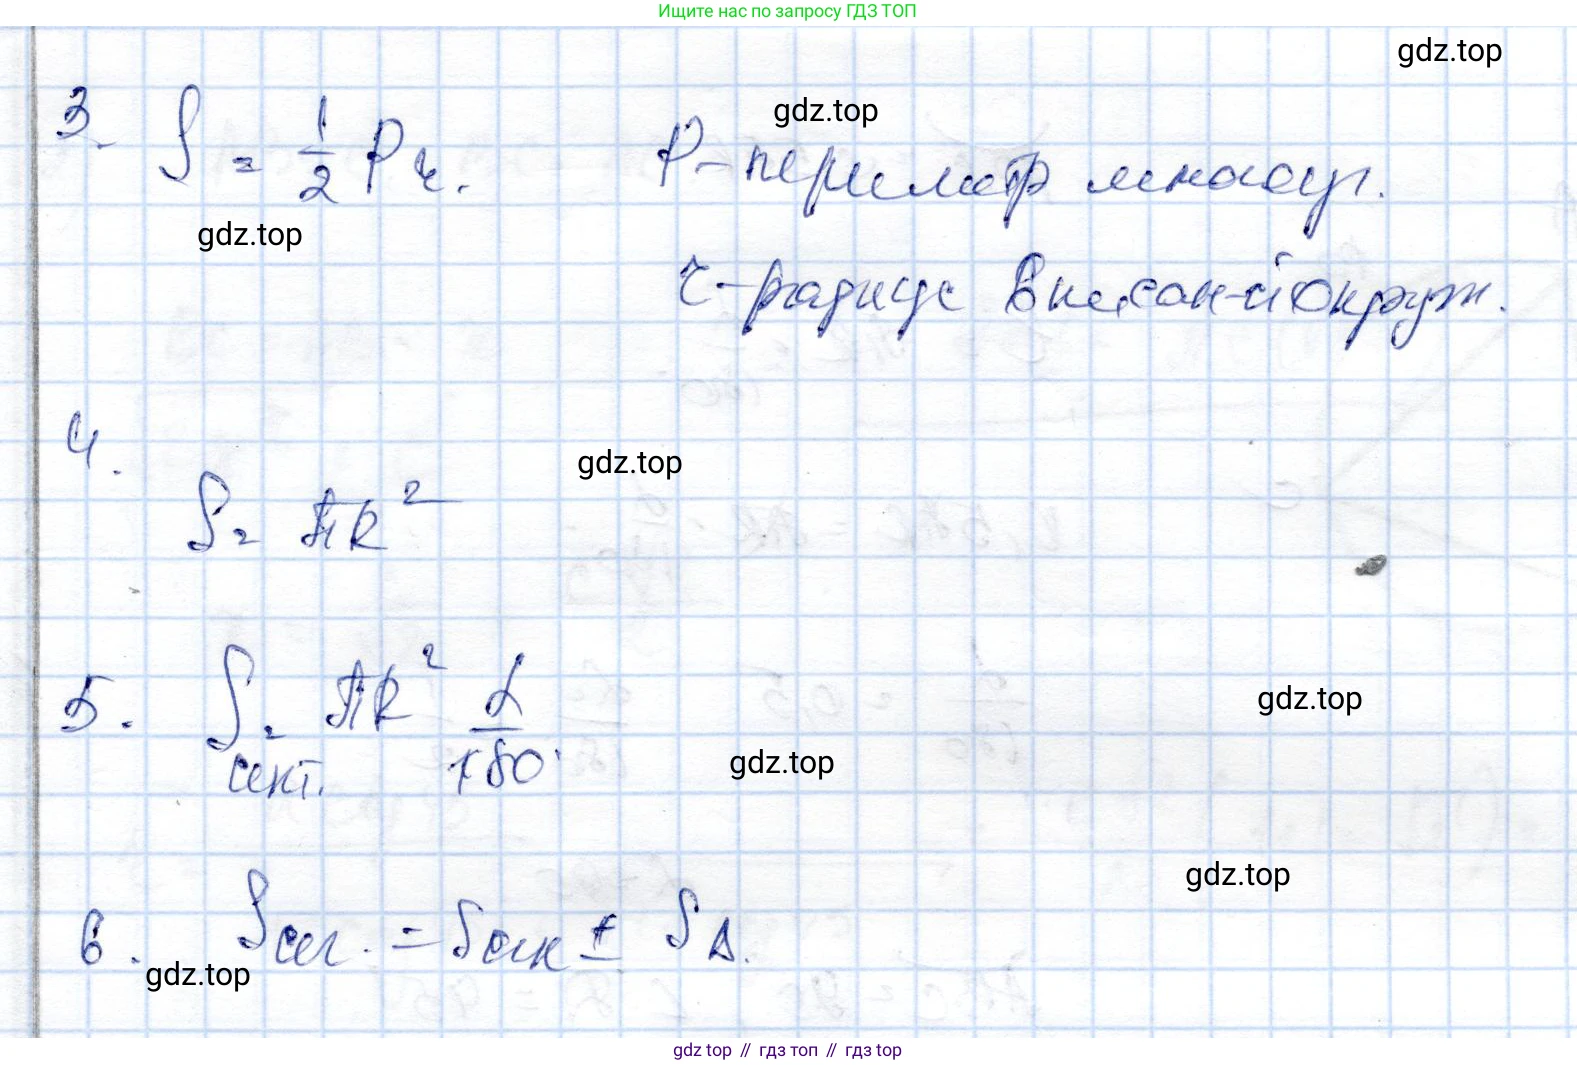 Ищите нас по запросу ГДЗ ТОП
gdz.top
gdz.top
3. S = 1/2 Pr. P - периметр многоуг.
gdz.top
r - радиус вписан-й окруж.
4.
gdz.top
S = πR²
5. S сект. = πR² α/180°
gdz.top
gdz.top
gdz.top
6. Sсег. = Sсек ± SΔ.
gdz.top
gdz top // гдз топ // gdz top